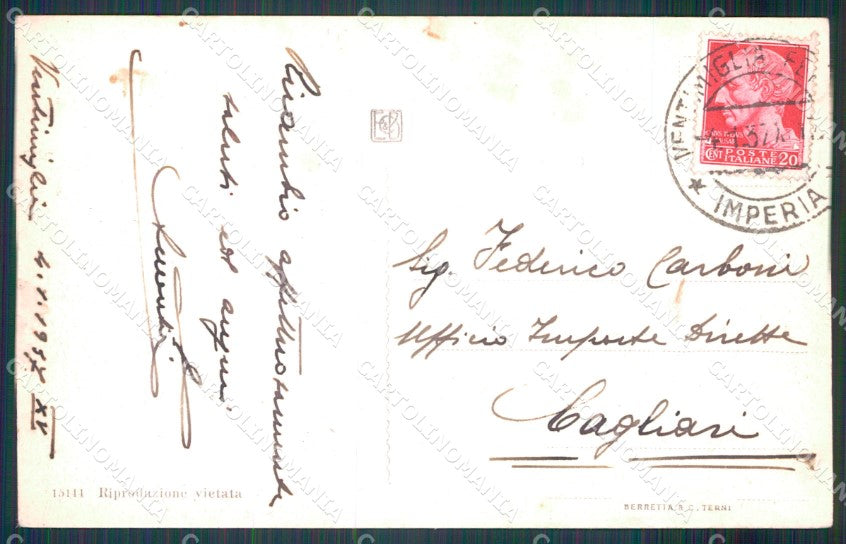 Ventimiglia 4.1.1937 XV
Ricambio affettuosamente
saluti ed auguri
VENTIMIGLIA
IMPERIA
POSTE
ITALIANE
CENT 20
Sig. Federico Carboni
Ufficio Imposte Dirette
Cagliari
15144 Riproduzione vietata
BERRETTA & C. TERNI
CARTOLINOMANIA